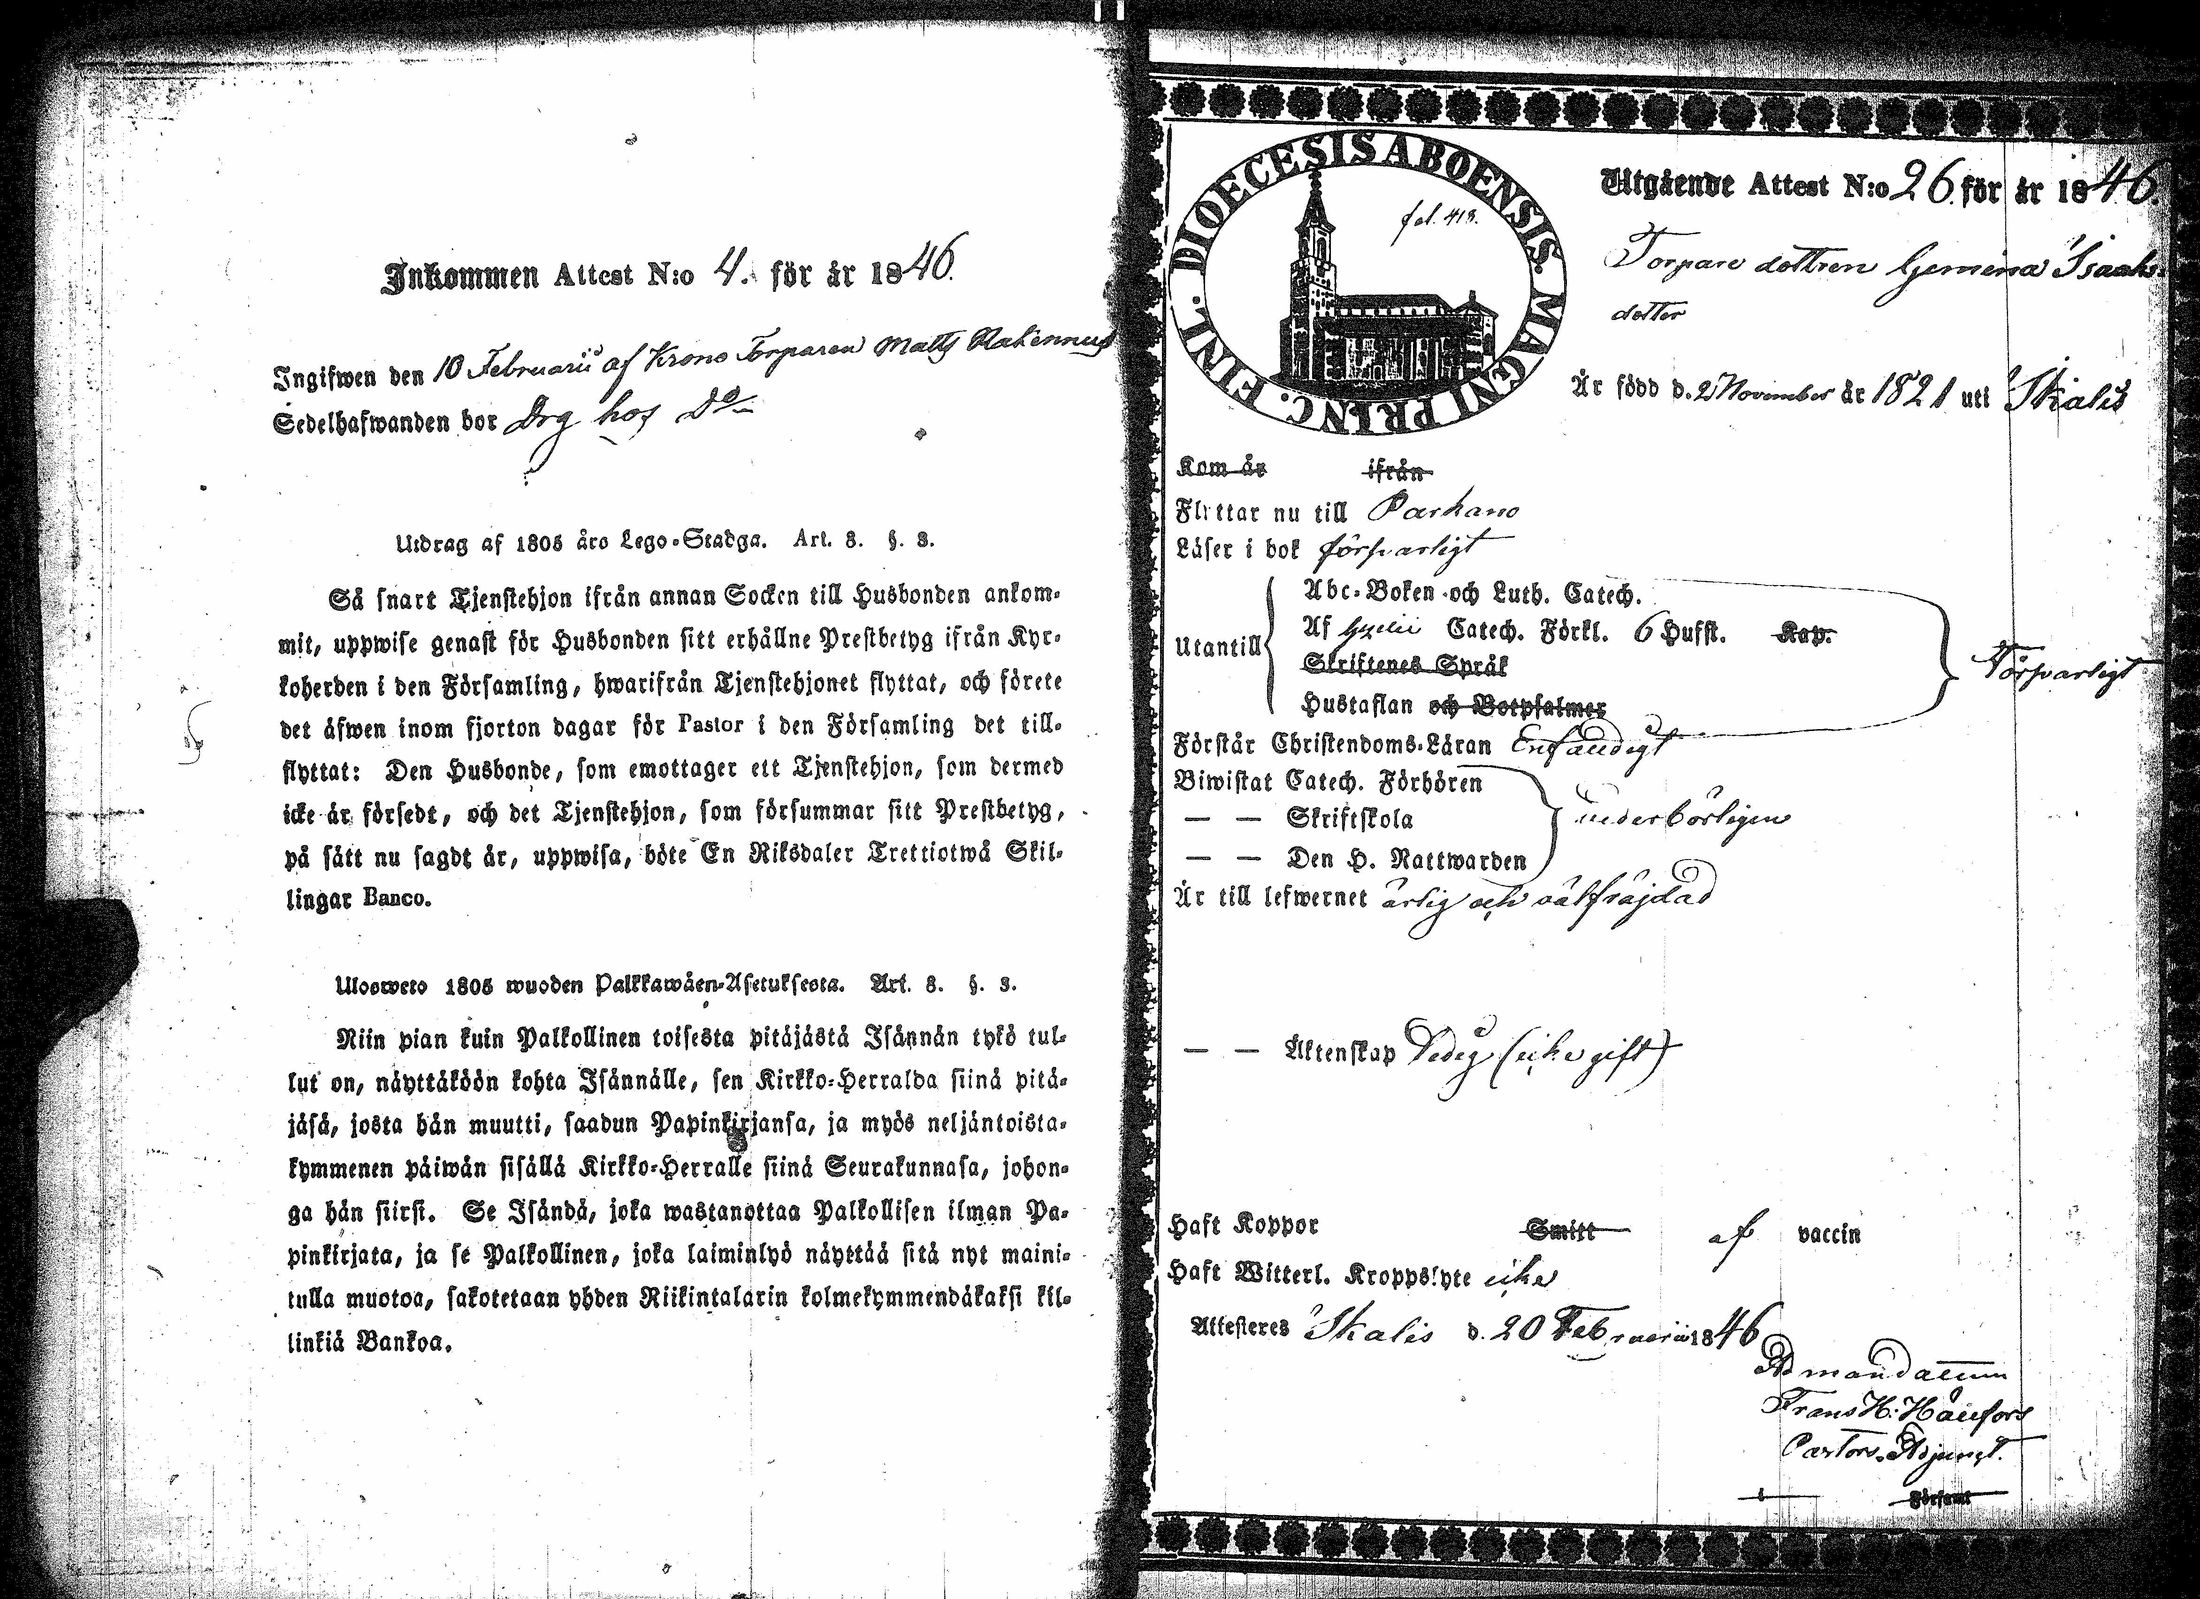 Inkommen Attest N:o 4. för år 1846.
Ingifwen den 10 Februarii af Krono Torparen Matts
Sedelhafwanden bor Drg hos Do
Utdrag af 1805 års Lego-Stadga. Art. 8. §. 3.
Så snart Tjenstehjon ifrån annan Socken till Husbonden ankom-
mit, uppwise genast för Husbonden sitt erhållne Prestbetyg ifrån Kyr-
koherden i den Församling, hwarifrån Tjenstehjonet flyttat, och förete
det äfwen inom fjorton dagar för Pastor i den Församling det till-
flyttat: Den Husbonde, som emottager ett Tjenstehjon, som dermed
icke är försedt, och det Tjenstehjon, som försummar sitt Prestbetyg,
på sätt nu sagdt är, uppwisa, böte En Riksdaler Trettiotwå Skil-
lingar Banco.
Ulosweto 1805 wuoden Palkkawäen-Asetuksesta. Art. 8. §. 3.
Niin pian kuin Palkollinen toisesta pitäjästä Isännän tykö tul-
lut on, näyttäköön kohta Isännälle, sen Kirkko-Herralda siinä pitä-
jäsä, josta hän muutti, saadun Papinkirjansa, ja myös neljäntoista-
kymmenen päiwän sisällä Kirkko-Herralle siinä Seurakunnasa, johon-
ga hän siirsi. Se Isändä, joka wastanottaa Palkollisen ilman Pa-
pinkirjata, ja se Palkollinen, joka laiminlyö näyttää sitä nyt maini-
tulla muotoa, sakotetaan yhden Riikintalarin kolmekymmendäkaksi kil-
linkiä Bankoa.
DIOECESIS ABOENSIS. MAGNI PRINC. FINL.
fol. 413.
Utgående Attest N:o 26 för år 1846.
Torpare dottren Gemina Isaaks-
dotter
Är född d. 2 November år 1821 uti Ikalis
Kom år ifrån
Flyttar nu till Parkano
Läser i bok försvarligt
Utantill
Abc-Boken och Luth. Catech.
Af Gezelii Catech. Förkl. 6 Hufst. Kap.
Skriftenes Språk
Hustaflan och Botpsalmer
Försvarligt
Förstår Christendoms-Läran Enfaldigt
Biwistat Catech. Förhören
— — Skriftskola
— — Den H. Nattwarden
vederbörligen
Är till lefwernet ärlig och välfräjdad
— — Äktenskap Ledig (icke gift)
Haft Koppor Smitt af vaccin
Haft Witterl. Kroppslyte icke
Attesteres Ikalis d. 20 Februarii 1846
Ad mandatum
Frans H:
Pastors Adjunct.
i Församl